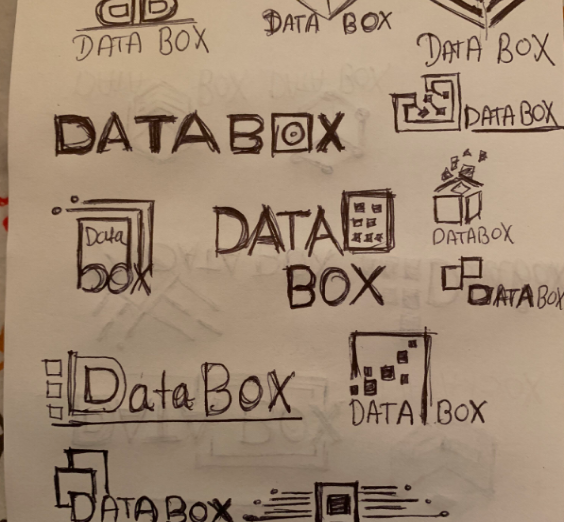 DATA BOX
DATA BOX
DATA BOX
DATABOX
DATABOX
Data
BOX
DATA
BOX
DATABOX
DATABOX
DataBOX
DATA BOX
DATABOX